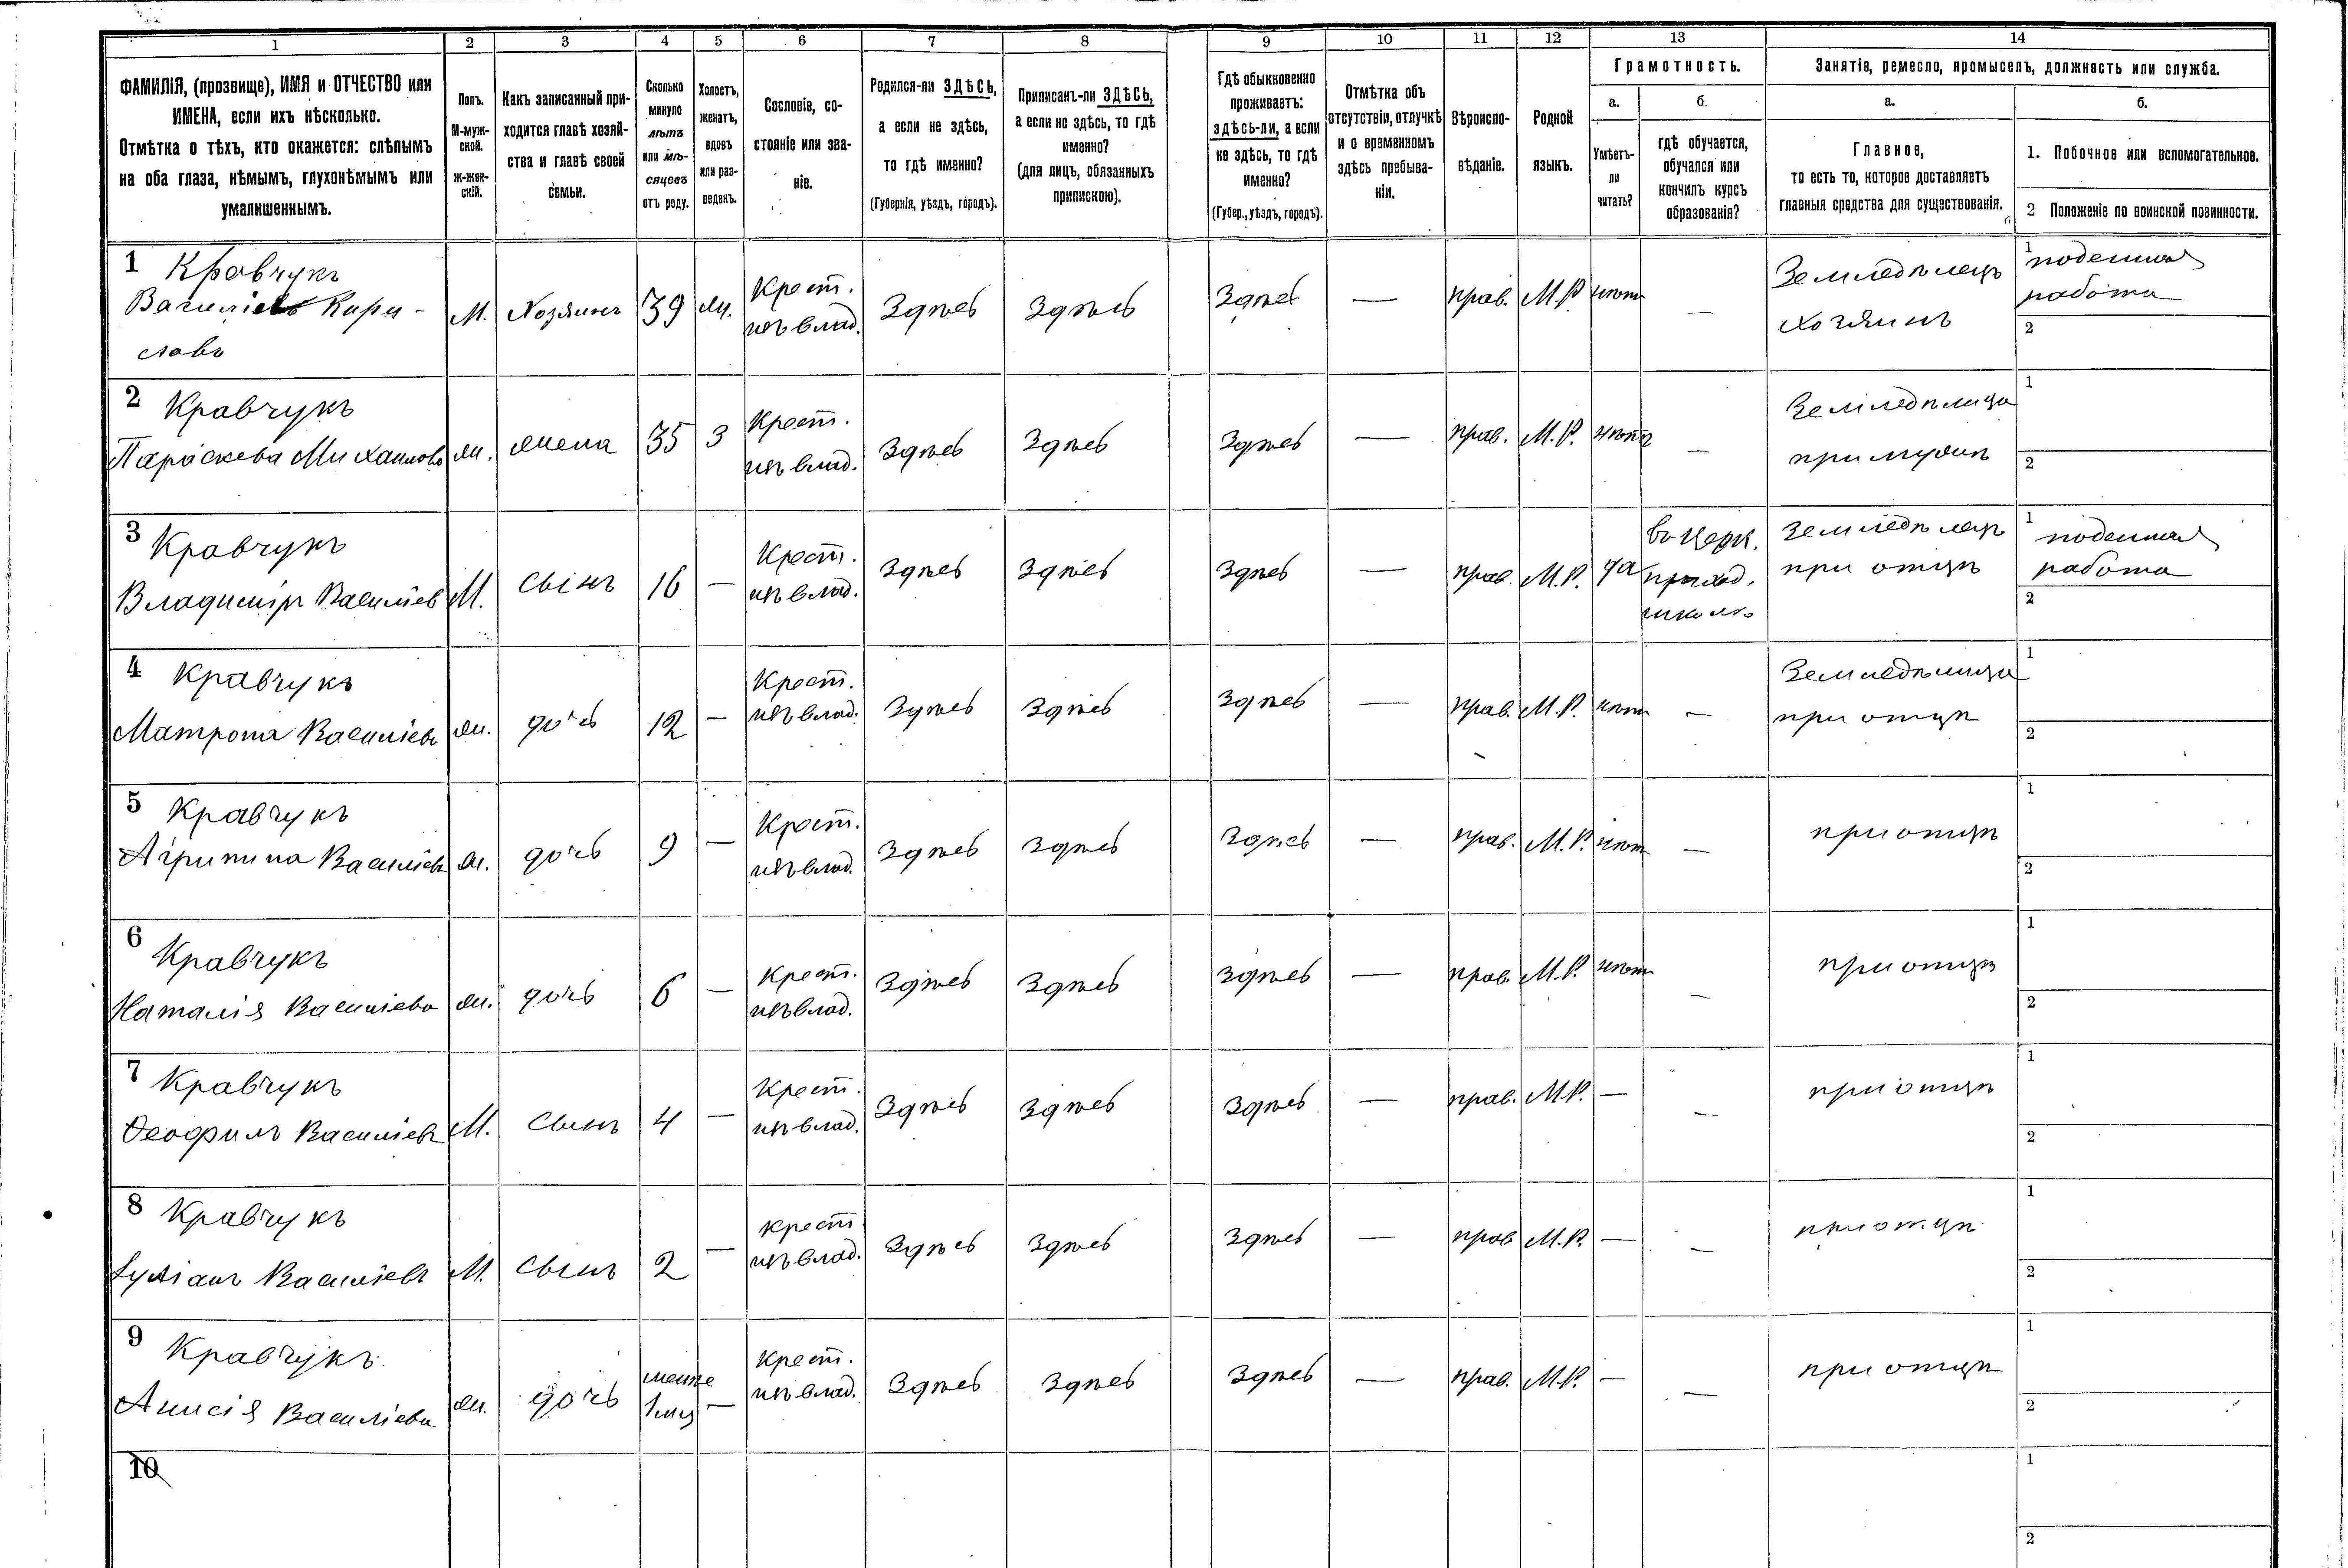 1 2 3 4 5 6 7 8 9 10 11 12 13 14
ФАМИЛІЯ, (прозвище), ИМЯ и ОТЧЕСТВО или
ИМЕНА, если ихъ нѣсколько.
Отмѣтка о тѣхъ, кто окажется: слѣпымъ
на оба глаза, нѣмымъ, глухонѣмымъ или
умалишеннымъ.
Полъ.
М-муж-
ской.
Ж-жен-
скій.
Какъ записанный при-
ходится главѣ хозяй-
ства и главѣ своей
семьи.
Сколько
минуло
лѣтъ
или мѣ-
сяцевъ
отъ роду.
Холостъ,
женатъ,
вдовъ
или раз-
веденъ.
Сословіе, со-
стояніе или зва-
ніе.
Родился-ли ЗДѢСЬ,
а если не здѣсь,
то гдѣ именно?
(Губернія, уѣздъ, городъ).
Приписанъ-ли ЗДѢСЬ,
а если не здѣсь, то гдѣ
именно?
(для лицъ, обязанныхъ
припискою).
Гдѣ обыкновенно
проживаетъ:
здѣсь-ли, а если
не здѣсь, то гдѣ
именно?
(Губер., уѣздъ, городъ).
Отмѣтка объ
отсутствіи, отлучкѣ
и о временномъ
здѣсь пребыва-
ніи.
Вѣроиспо-
вѣданіе.
Родной
языкъ.
Грамотность.
а.
Умѣетъ-
ли
читать?
б.
гдѣ обучается,
обучался или
кончилъ курсъ
образованія?
Занятіе, ремесло, промыселъ, должность или служба.
а.
Главное,
то есть то, которое доставляетъ
главныя средства для существованія.
б.
1. Побочное или вспомогательное.
2 Положеніе по воинской повинности.
1 Кравчукъ
Василіевъ Кири-
ловъ
М. Хозяинъ 39 ж.
Крест.
изъ влад.
Здѣсь Здѣсь Здѣсь — прав. М.Р. нѣтъ —
Земледѣлецъ
хозяинъ
1 поденная
работа
2
2 Кравчукъ
Параскева Михаилова
ж. жена 35 З
Крест.
изъ влад.
Здѣсь Здѣсь Здѣсь — прав. М.Р. нѣтъ —
Земледѣлица
при мужѣ
1
2
3 Кравчукъ
Владиміръ Василіев
М. Сынъ 16 —
Крест.
изъ влад.
Здѣсь Здѣсь Здѣсь — прав. М.Р. да
въ церк.
приход.
школѣ
земледѣлецъ
при отцѣ
1 поденная
работа
2
4 Кравчукъ
Матрона Василіева
ж. дочь 12 —
Крест.
изъ влад.
Здѣсь Здѣсь Здѣсь — прав. М.Р. нѣтъ —
Земледѣлица
при отцѣ
1
2
5 Кравчукъ
Агрипина Василіева
ж. дочь 9 —
Крест.
изъ влад.
Здѣсь Здѣсь Здѣсь — прав. М.Р. нѣтъ —
при отцѣ
1
2
6
Кравчукъ
Наталія Василіева
ж. дочь 6 —
Крест.
изъ влад.
Здѣсь Здѣсь Здѣсь — прав М.Р. нѣтъ —
при отцѣ
1
2
7 Кравчукъ
Ѳеофилъ Василіевъ
М. Сынъ 4 —
Крест.
изъ влад.
Здѣсь Здѣсь Здѣсь — прав. М.Р. — —
при отцѣ
1
2
8 Кравчукъ
Іуліанъ Василіевъ
М. Сынъ 2 —
Крест
изъ влад.
Здѣсь Здѣсь Здѣсь — прав М.Р. — —
при отцѣ
1
2
9 Кравчукъ
Анисія Василіева
ж. дочь
менѣе
1 мѣс —
Крест.
изъ влад.
Здѣсь Здѣсь Здѣсь — прав. М.Р. — —
при отцѣ
1
2
10
1
2